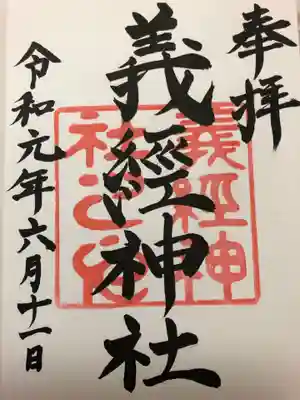 奉拝
義經神社
義経神社之印
令和元年六月十一日